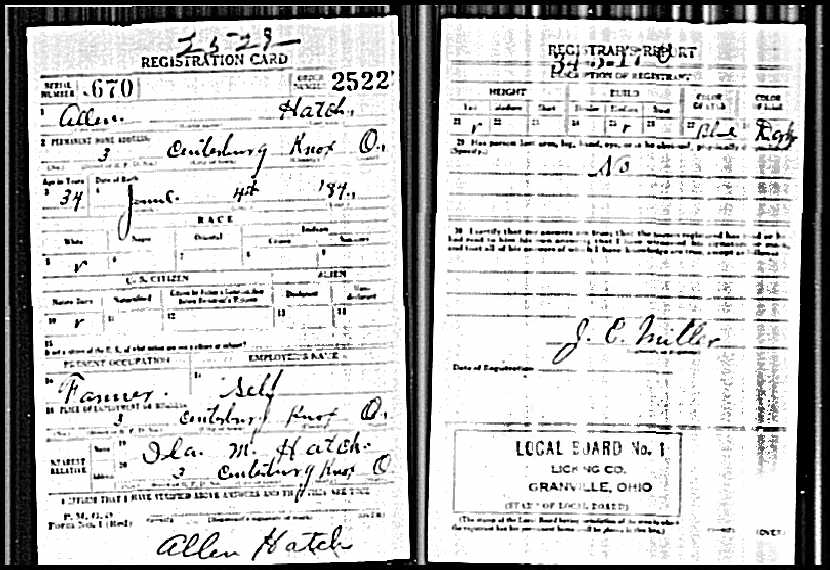 25-29
REGISTRATION CARD
SERIAL NUMBER 670 ORDER NUMBER 2522
1 Allen Hatch,
2 PERMANENT HOME ADDRESS:
3 Centerburg Knox O.,
Age in Years Date of Birth
3 34 4 June 4th '84,
RACE
White Negro Oriental Indian
Citizen
5 v 6 7 8 9
U.S. CITIZEN ALIEN
Native Born Naturalized Declarant Non-declarant
10 v 11 12 13 14
15
PRESENT OCCUPATION EMPLOYER'S NAME
16 Farmer. 17 Self
18 PLACE OF EMPLOYMENT OR BUSINESS
3 Centerburg Knox O.,
NEAREST RELATIVE Name 19 Ida. M. Hatch.
Address 20 3 Centerburg Knox O
I AFFIRM THAT I HAVE VERIFIED ABOVE ANSWERS AND THAT THEY ARE TRUE
P. M. G. O.
Form No. 1 (Red) (OVER)
Allen Hatch
REGISTRAR'S REPORT
DESCRIPTION OF REGISTRANT
HEIGHT BUILD COLOR OF EYES COLOR OF HAIR
Tall Medium Short Slender Medium Stout
21 v 22 23 24 25 v 26 27 Blue 28 Dark
29 Has person lost arm, leg, hand, eye, or is he obviously physically
(Specify.)
No
30 I certify that my answers are true; that the person registered has read or has
had read to him his own answers; that I have witnessed his signature or mark,
and that all of his answers of which I have knowledge are true, except as follows:
J. E. Miller
Date of Registration
LOCAL BOARD No. 1
LICKING CO.
GRANVILLE, OHIO
(STAMP OF LOCAL BOARD)
(The stamp of the Local Board having jurisdiction of the area in which
the registrant has his permanent home shall be placed in this box.)
(OVER)